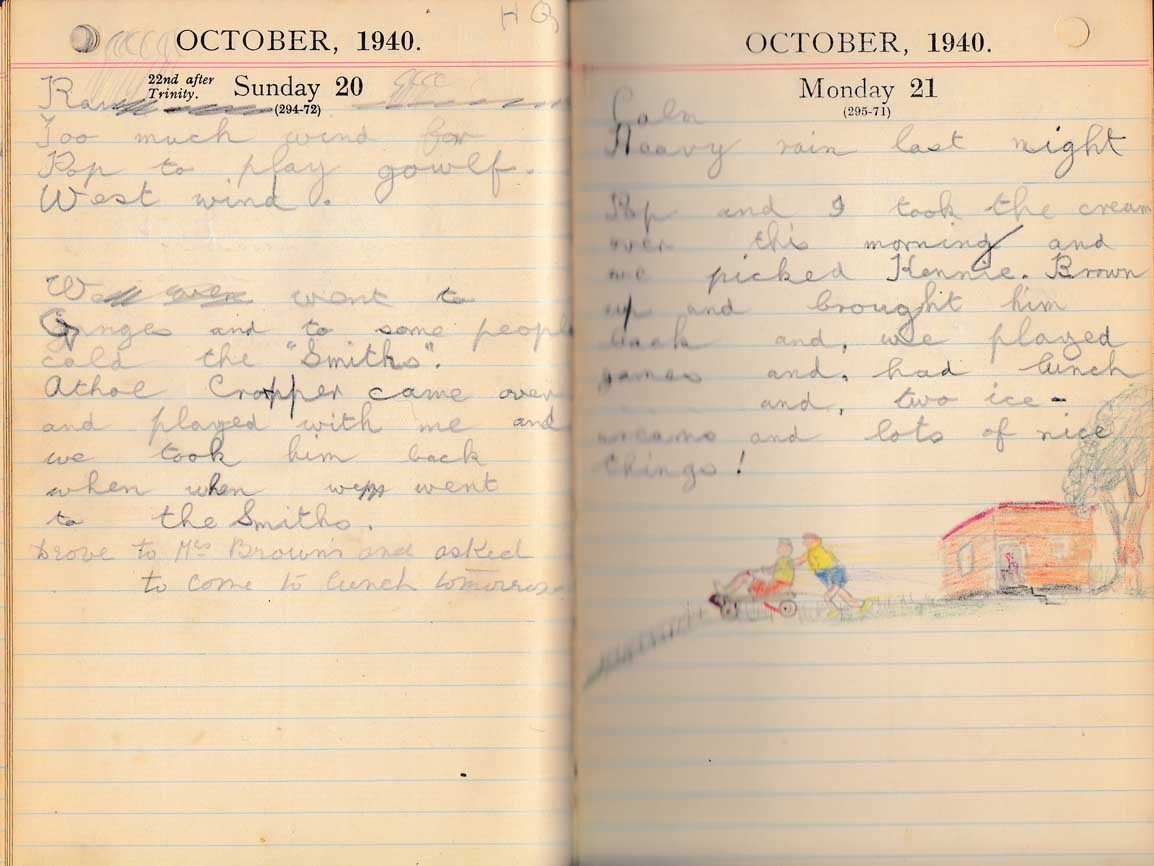 H Q
OCTOBER, 1940.
22nd after
Trinity.
Sunday 20
(294-72)
Too much wind for
Pop to play gowlf.
West wind.
We went to
Ganges and to some people
cald the "Smiths".
Athol Cropper came over
and played with me and
we took him back
when when we went
to the Smiths.
Drove to Mrs Brown's and asked
to come to lunch tomorrow
OCTOBER, 1940.
Monday 21
(295-71)
Calm
Heavy rain last night
Pop and I took the cream
over this morning and
we picked Kennie. Brown
up and brought him
back and, we played
games and, had lunch
and, two ice-
creams and lots of nice
things!